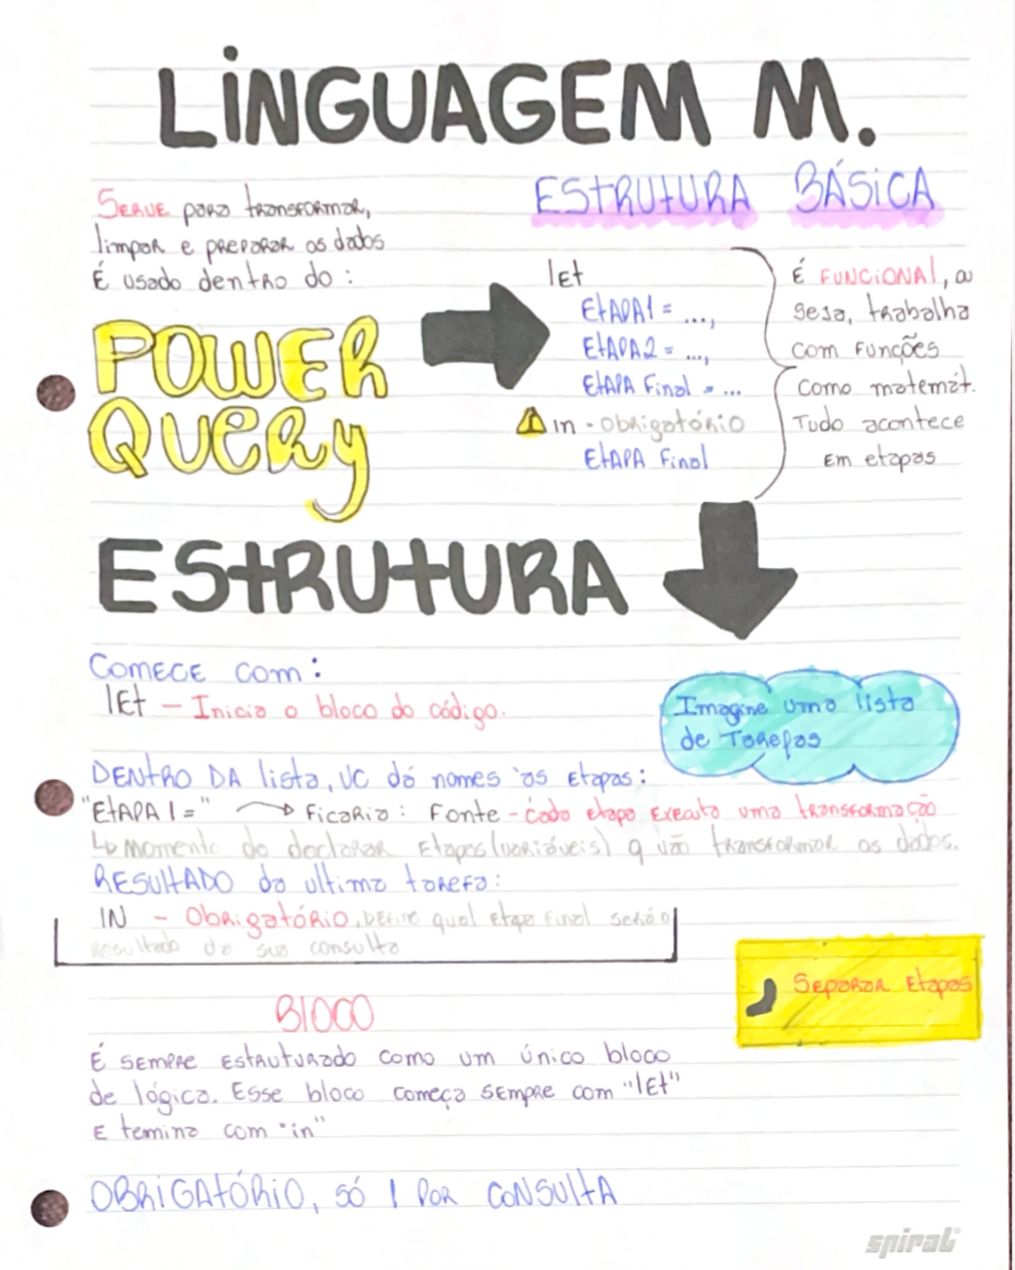 LINGUAGEM M.
SERVE para transformar,
limpar e preparar os dados
É usado dentro do:
POWER
QUERY
ESTRUTURA BÁSICA
let
ETAPA1 = ...,
ETAPA2 = ...,
ETAPA Final = ...
In - obrigatório
ETAPA Final
É FUNCIONAl, ou
seja, trabalha
com Funções
como matemát.
Tudo acontece
Em etapas
ESTRUTURA
COMECE com:
lEt - Inicia o bloco do código.
Imagine uma lista
de Tarefas
DENTRO DA lista, VC dá nomes às Etapas:
"EtAPA1=" → Ficaria: Fonte - cada etapa Executa uma transformação
↳ momento de Etapas (variáveis) q vão transformar os dados.
RESULTADO da ultima tarefa:
IN - Obrigatório, DEFine qual Etapa Final será o
Resultado da sua consulta
, Separar Etapas
BlOCO
É SEMPRE ESTRUTURADO como um único bloco
de lógica. Esse bloco começa sempre com "lEt"
E temina com "in"
OBRIGATÓRIO, SÓ 1 POR CONSULTA
spiral